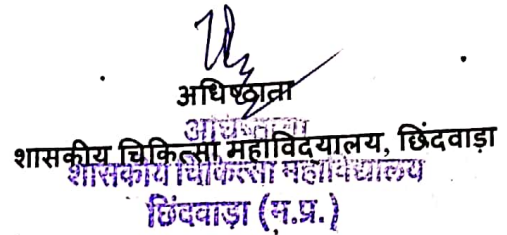 अधिष्ठाता
अधिष्ठाता
शासकीय चिकित्सा महाविदयालय, छिंदवाड़ा
शासकीय चिकित्सा महाविद्यालय
छिंदवाड़ा (म.प्र.)